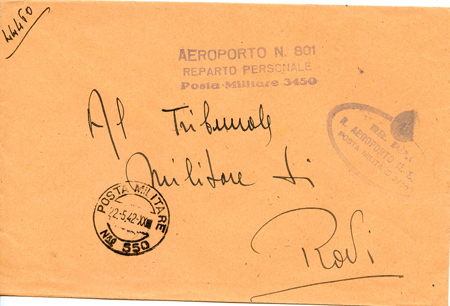 44460
AEROPORTO N. 801
REPARTO PERSONALE
Posta Militare 3450
Al Tribunale
Militare di
Rodi
R. AEROPORTO N.
POSTA MILITARE
POSTA MILITARE
22.5.42-XX
Nº 550